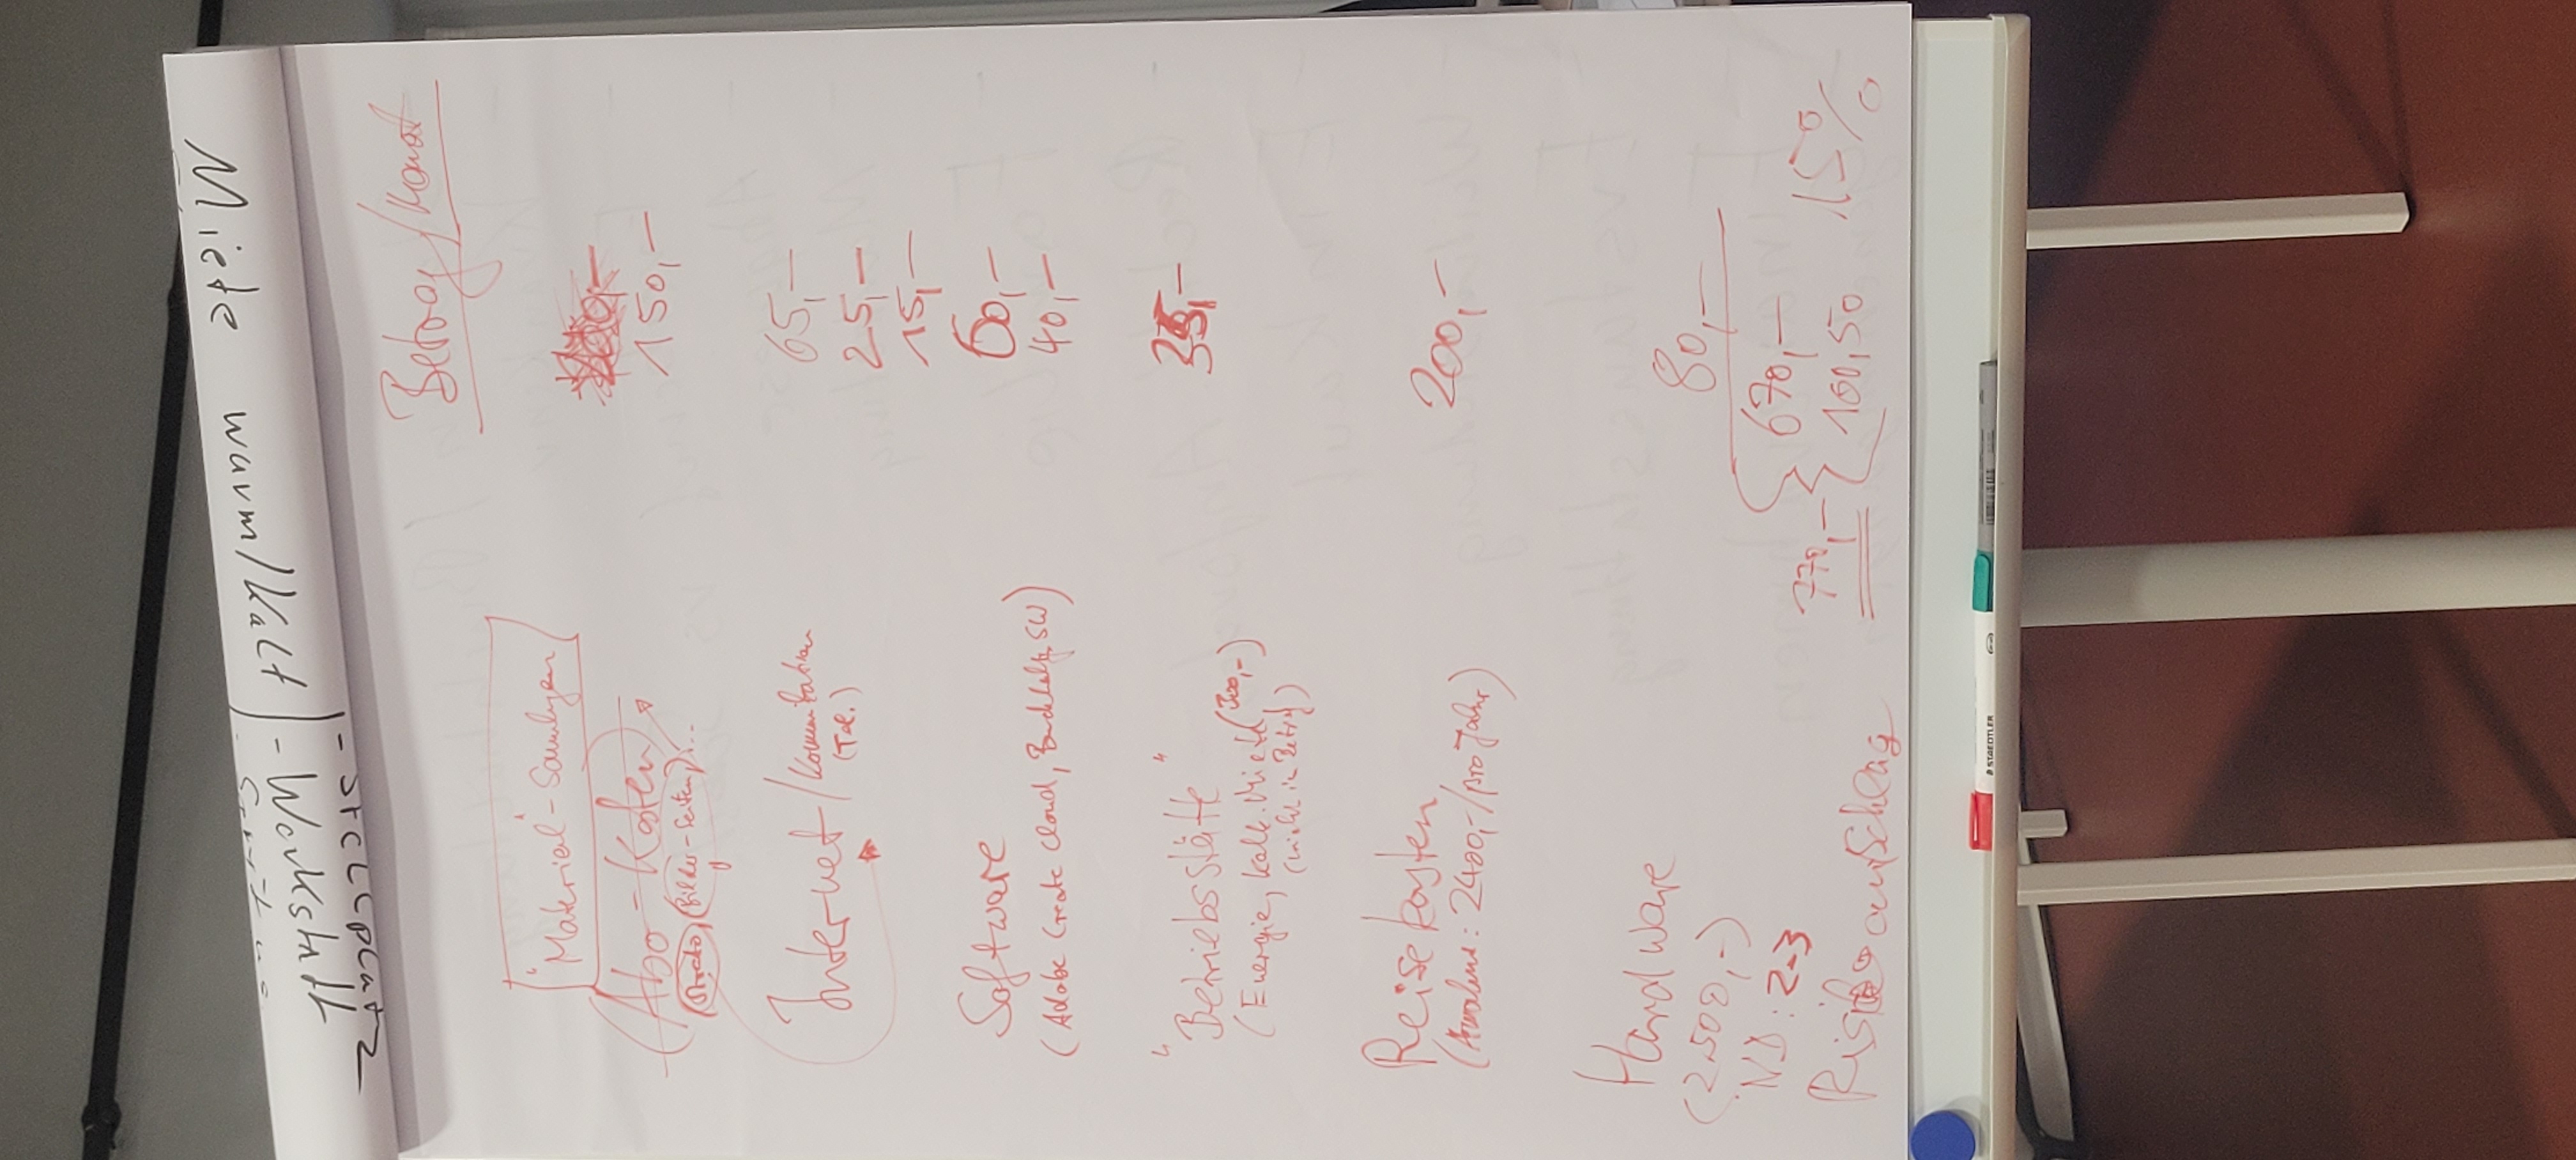 Miete warm/kalt
- Werkstatt
- Stellplatz
Betrag/Monat
"Material"-Sammlungen
(Abo-Kosten
150,-
Bilder-Seiten)...
Internet-/Kommunikation 65,-
(Tel.) 25,-
15,-
Software 60,-
(Adobe Create Cloud, Buchhaltg. SW) 40,-
"Betriebsstätte" 35,-
(Energie, kalk. Miete (300,-)
(nicht in Betrag)
Reisekosten 200,-
(Annahme: 2400,-/pro Jahr)
Hardware 80,-
(2.500,-)
ND: 2-3 670,-
770,-
Risikoaufschlag 100,50 15%
STAEDTLER